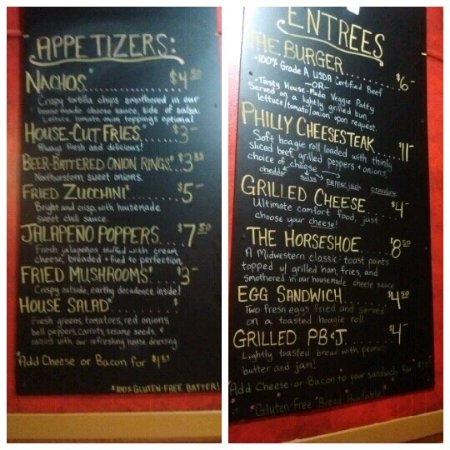 APPETIZERS:
NACHOS* $4.50
Crispy tortilla chips smothered in our
house-made cheese sauce, side of salsa.
lettuce tomato onion toppings optional
HOUSE-CUT FRIES* $3-
Always fresh and delicious!
BEER-BATTERED ONION RINGS* $3.25
Northwestern sweet onions.
FRIED ZUCCHINI* $5-
Bright and crisp with housemade
sweet chili sauce.
JALAPEÑO POPPERS $7.50
Fresh jalapeños stuffed with cream
cheese, breaded & fried to perfection.
FRIED MUSHROOMS* $3-
Crispy outside, earthy decadence inside!
HOUSE SALAD* $
Fresh greens, tomatoes, red onions,
bell peppers, carrots, sesame seeds, &
raisins with our refreshing house dressing
*Add Cheese or Bacon for $1.50
*100% GLUTEN-FREE BATTER!
ENTREES
THE BURGER $6-
-100% Grade A USDA Certified Beef
-OR-
-Tasty House-Made Veggie Patty
Served on a lightly grilled bun,
lettuce/tomato/onion upon request.
PHILLY CHEESESTEAK $11-
Soft hoagie roll loaded with thinly
sliced beef, grilled peppers & onions,
choice of cheese
cheddar swiss pepperjack provolone
GRILLED CHEESE $4-
Ultimate comfort food, just
choose your cheese!
THE HORSESHOE $8.50
A Midwestern classic- toast points
topped w/ grilled ham, fries, and
smothered in our housemade cheese sauce
EGG SANDWICH $4.50
Two fresh eggs fried and served
on a toasted hoagie roll
GRILLED PB&J $4-
Lightly toasted bread with peanut
butter and jam!
Add Cheese or Bacon to your sandwich for
*Gluten-Free Bread Available*